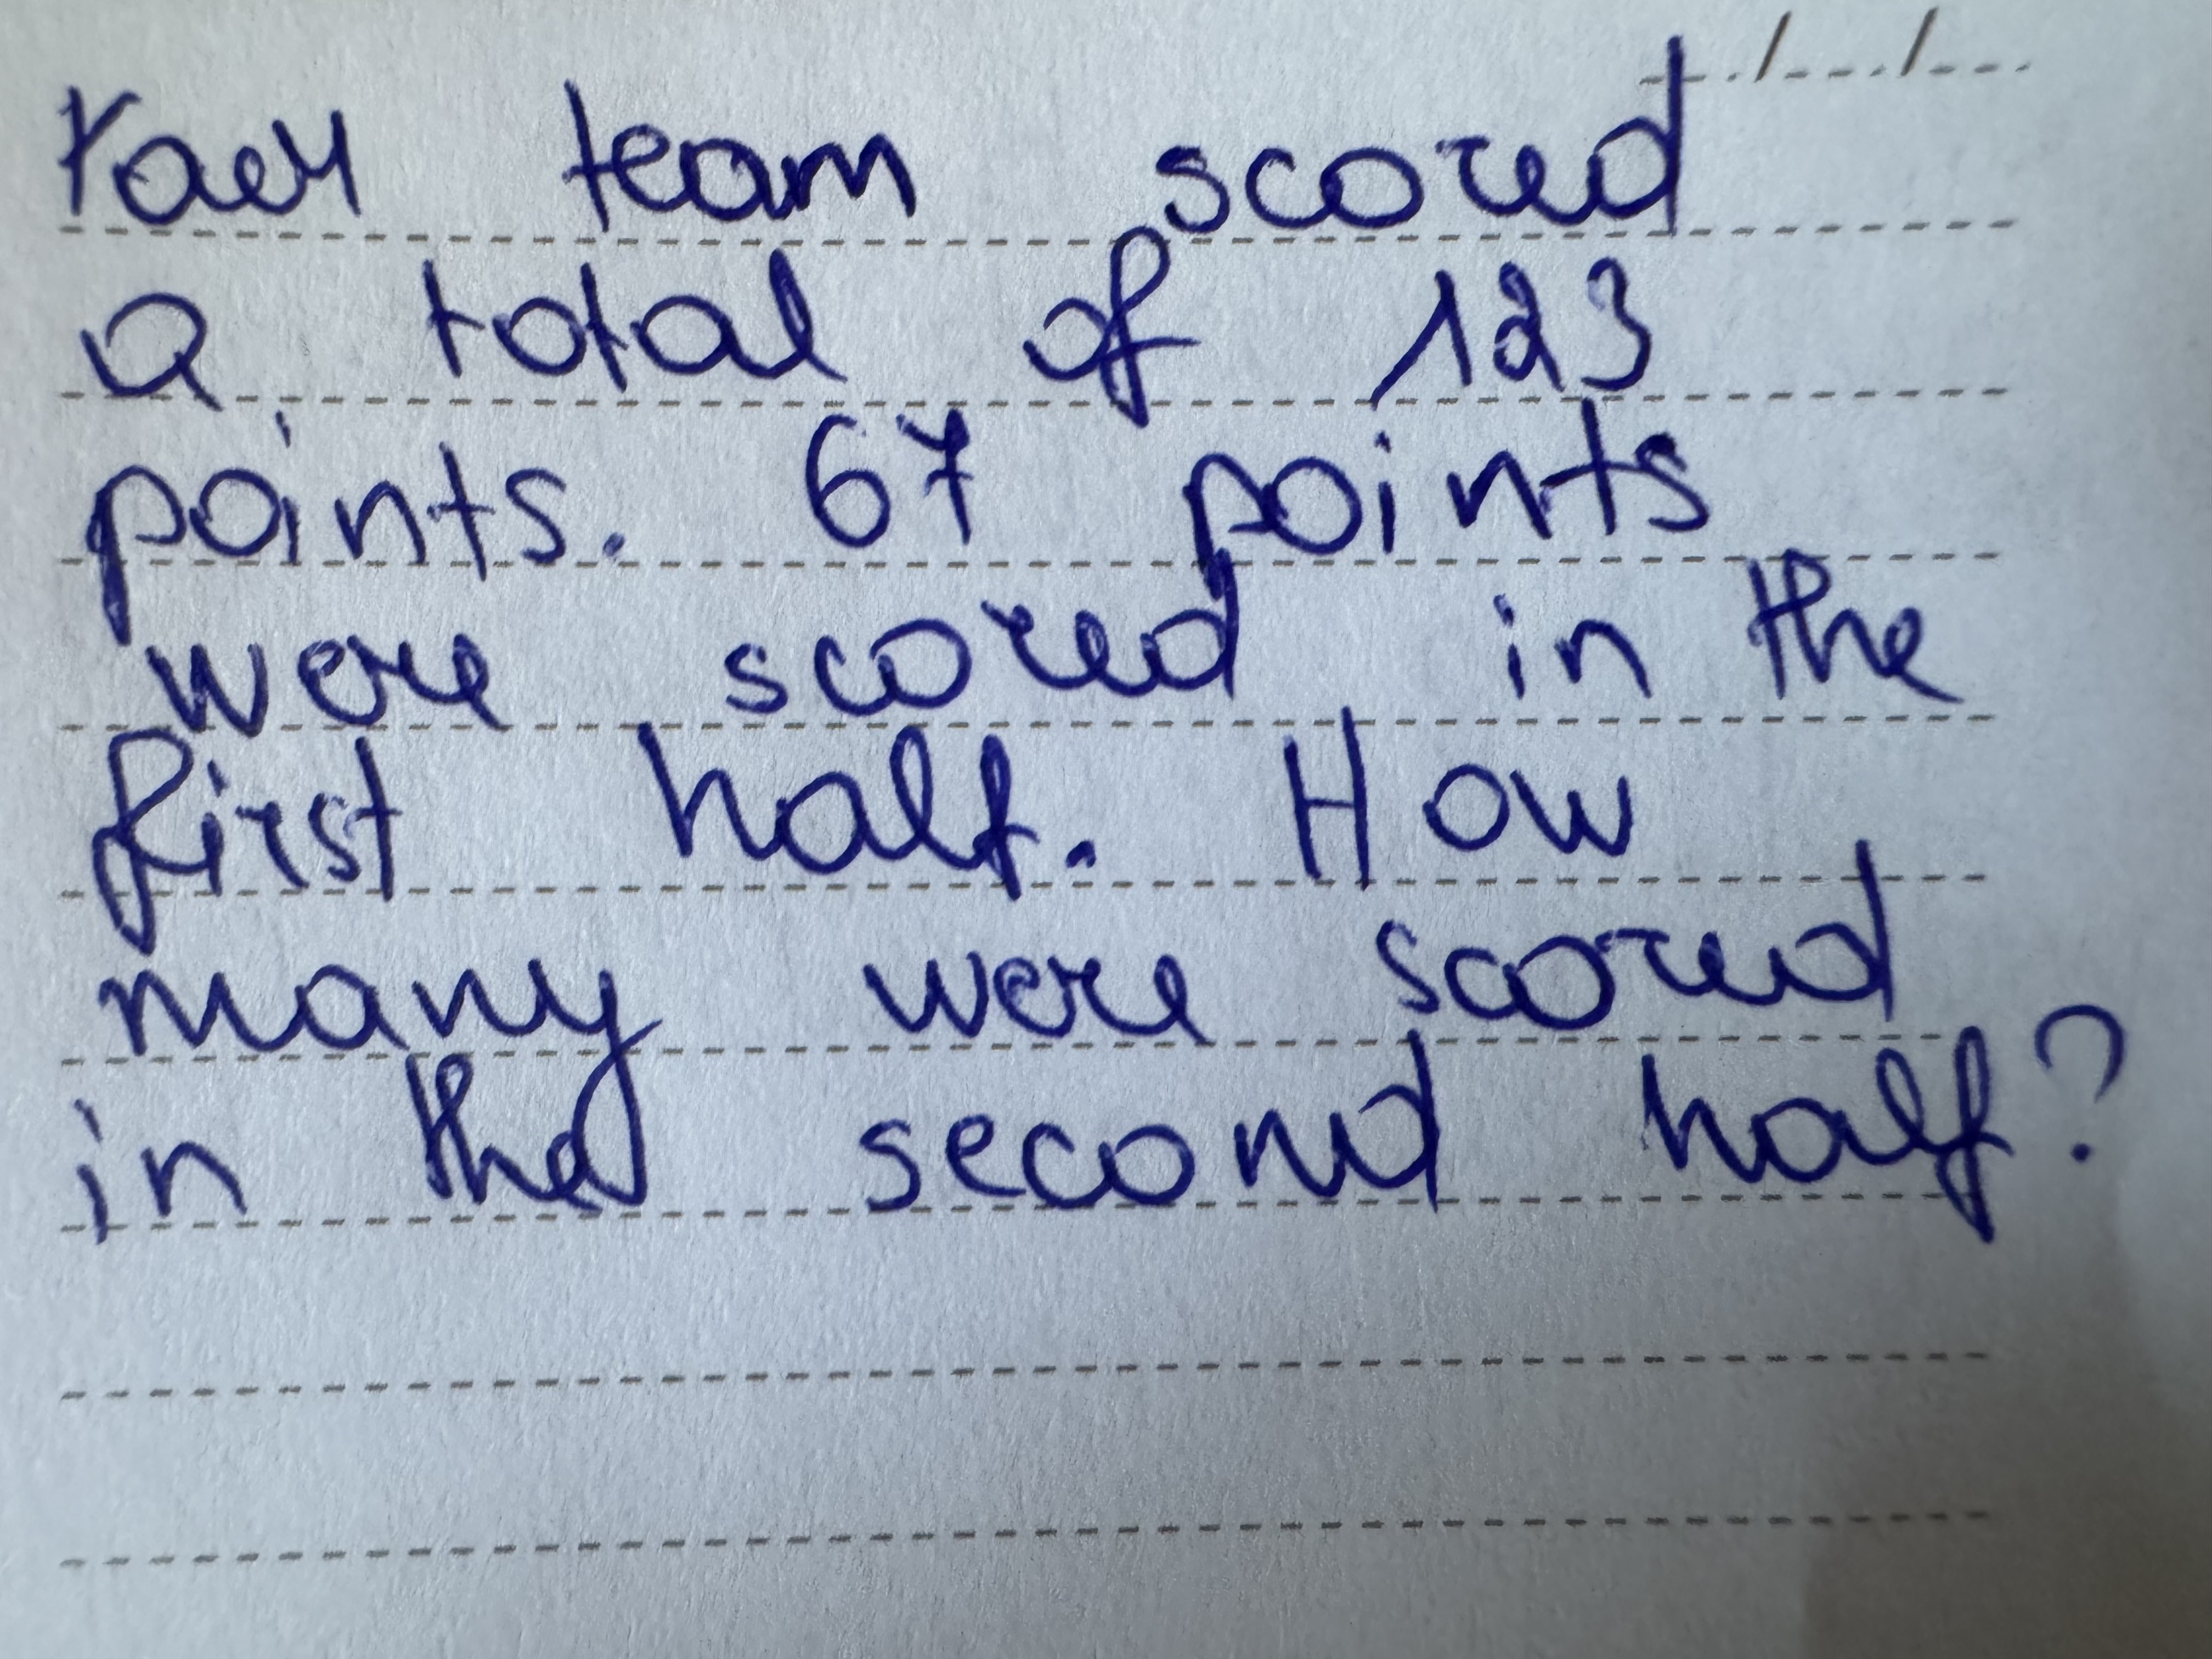 team scored
a total of 123
points. 67 points
were scored in the
first half. How
many were scored
in the second half?